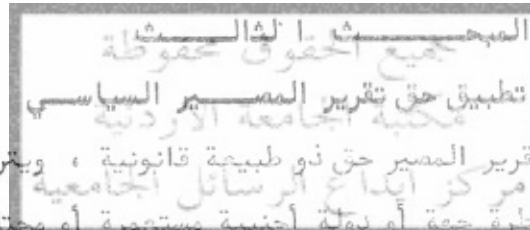 المبحث الثالث
جميع الحقوق محفوظة
تطبيق حق تقرير المصير السياسي
مكتبة الجامعة الاردنية
قرير المصير حق ذو طبيعة قانونية ، ويتر
مركز ايداع الرسائل الجامعية
جهة أو دولة أجنبية مستعمرة أو محتـ